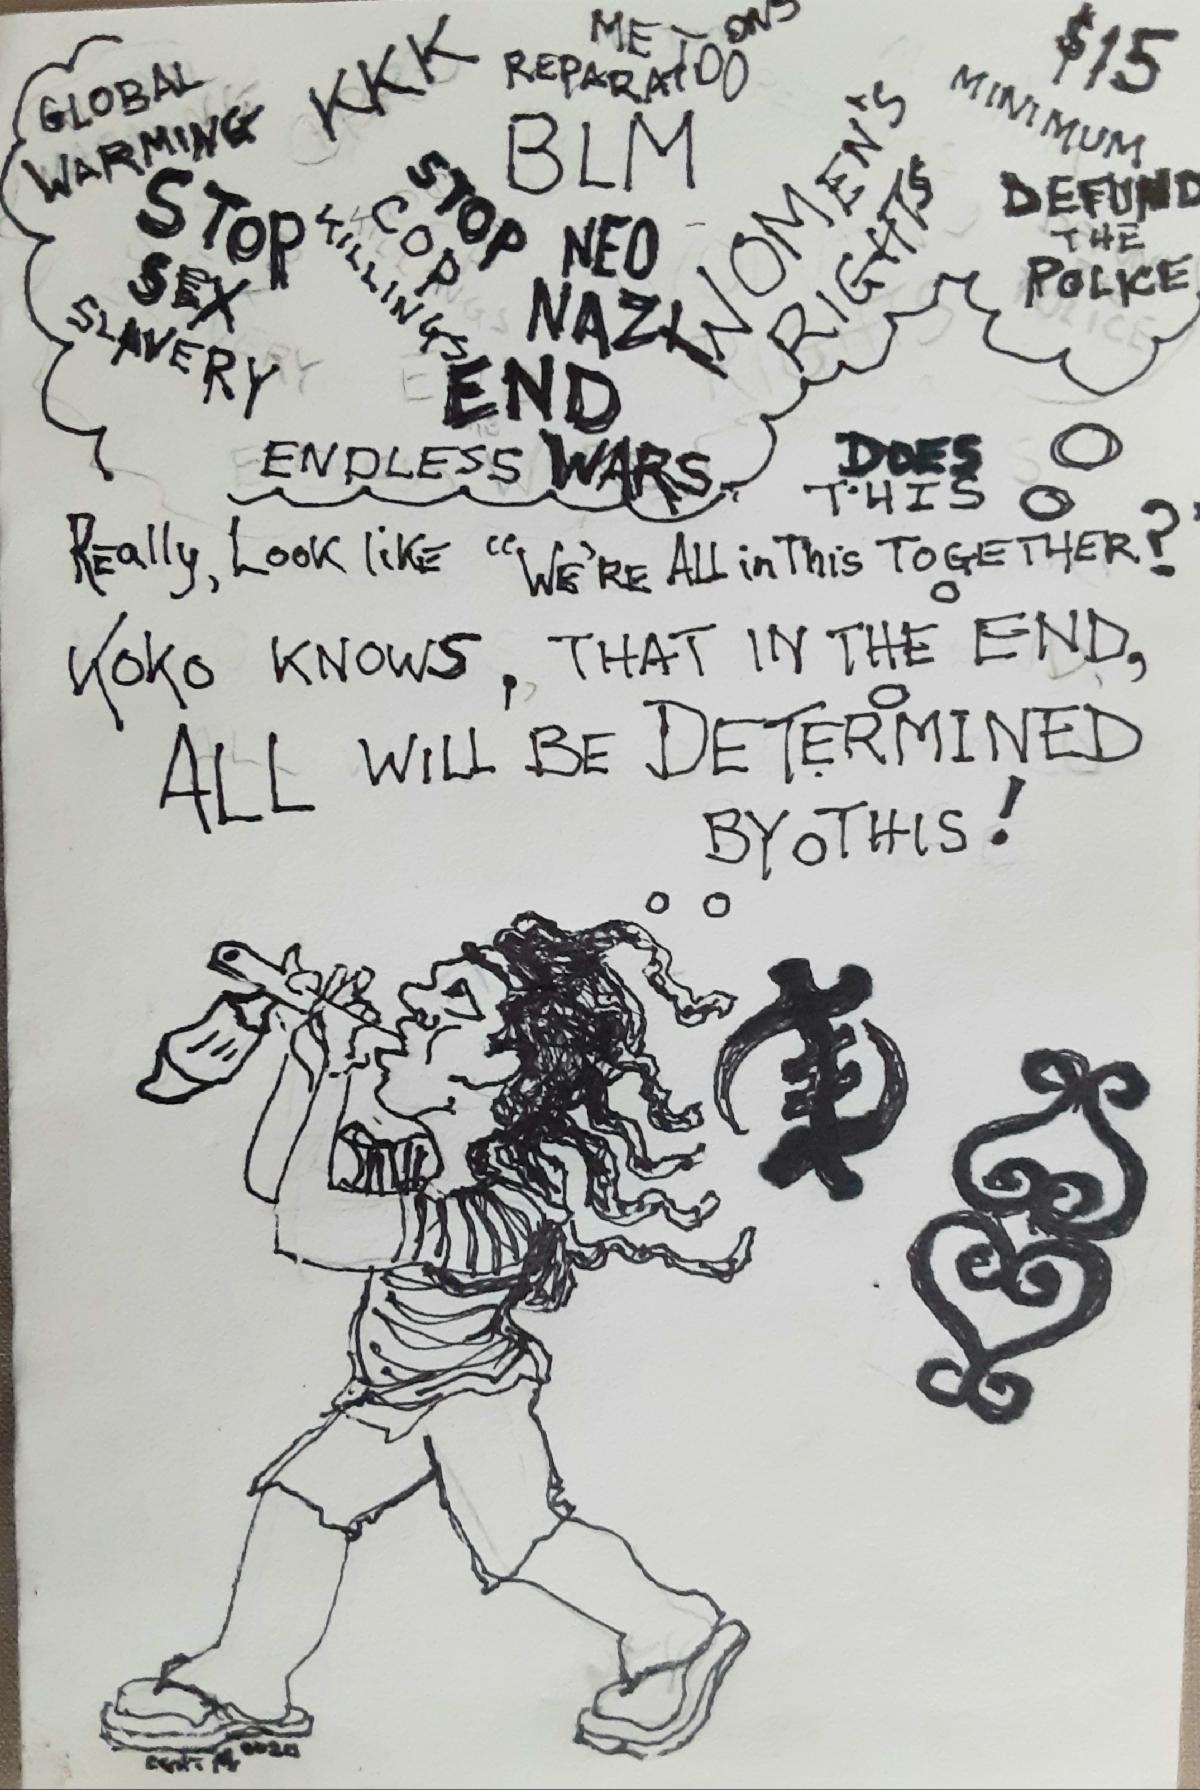 GLOBAL
WARMING
KKK
ME TOO
REPARATIONS
BLM
$15
MINIMUM
STOP
SEX
SLAVERY
STOP
COP
KILLINGS
NEO
NAZI
WOMEN'S
RIGHTS
DEFUND
THE
POLICE
END
ENDLESS WARS
DOES
THIS
Really, Look like "We're All in This TOGETHER?"
KOKO KNOWS, THAT IN THE END,
ALL WILL BE DETERMINED
BY THIS!